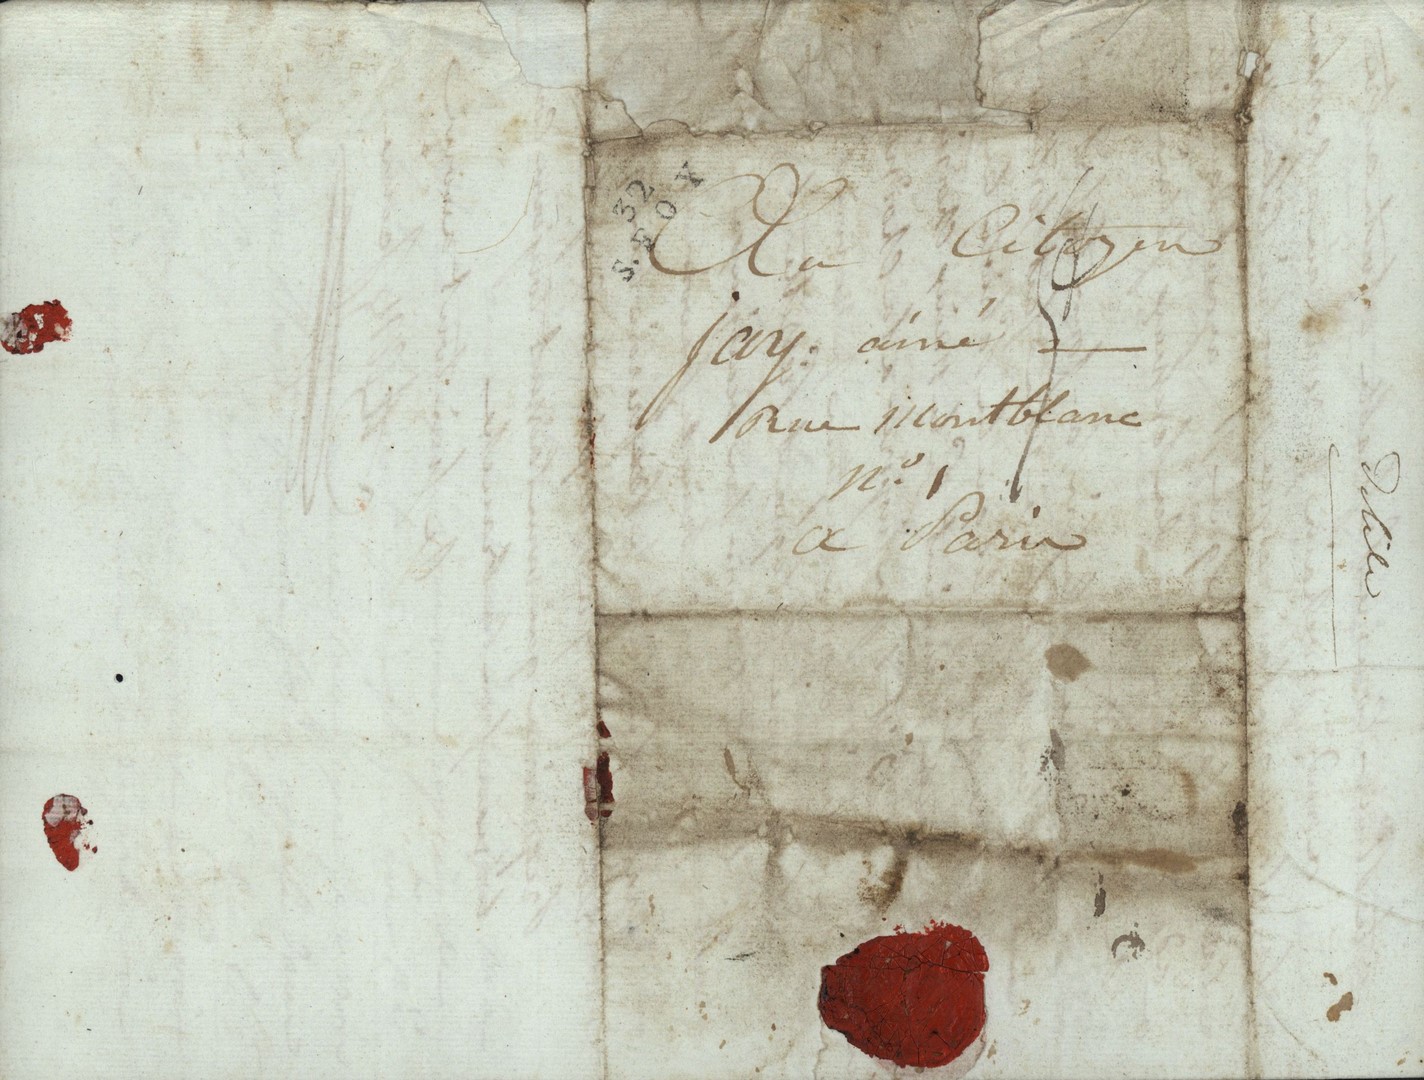 32
S. FOY
Au Citoyen
jay. ainé
Rue Montblanc
n.º 1
a Paris